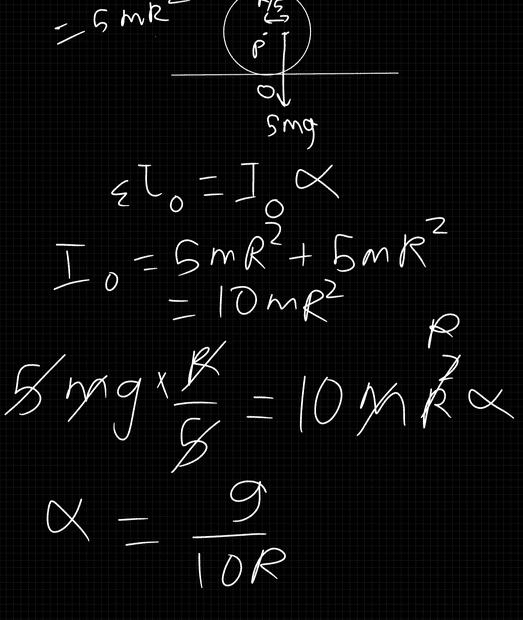 = 5mR²
R/5
P
O
5mg
ετ₀ = I₀ α
I₀ = 5mR² + 5mR²
= 10mR²
R
5mg × R/5 = 10mR²α
α = g/10R